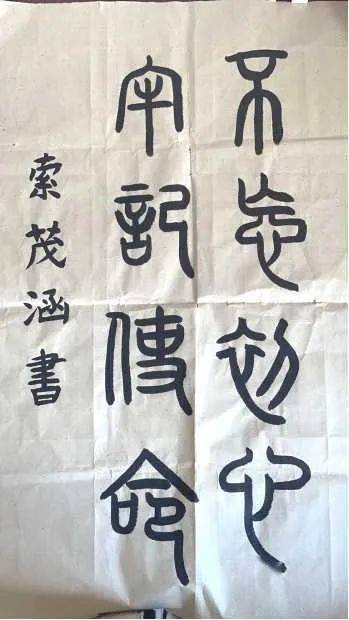 不忘初心
牢記使命
索茂涵書